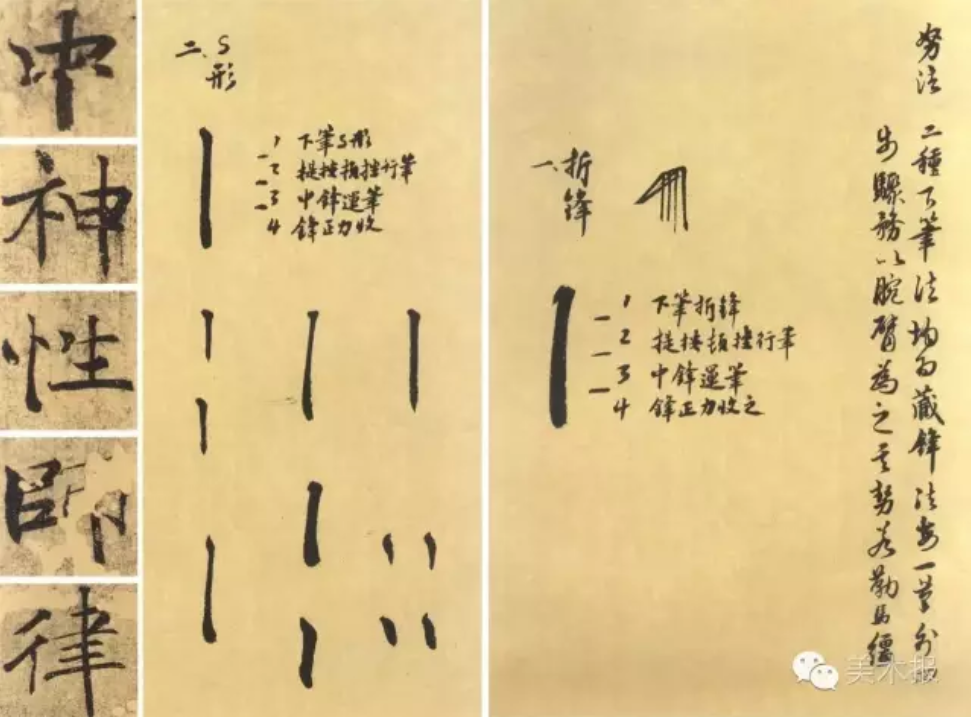 努法
二種下筆法均為藏鋒法安一筆分四
步驟務以腕臂為之其勢若勒馬韁
一、折鋒
1 下筆折鋒
2 提按頓挫行筆
3 中鋒運筆
4 鋒正力收之
二、S形
1 下筆S形
2 提按頓挫行筆
3 中鋒運筆
4 鋒正力收
中
神
性
師
律
美术报